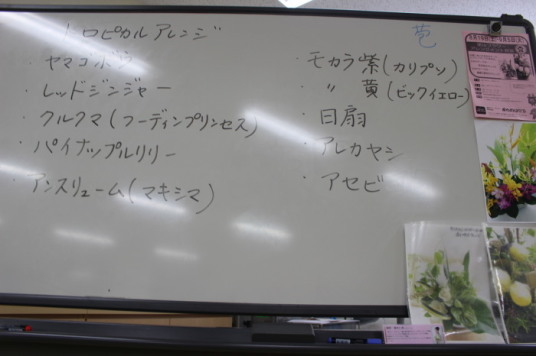 トロピカルアレンジ
・ヤマゴボウ
・レッドジンジャー
・クルクマ(フーディンプリンセス)
・パイナップルリリー
・アンスリューム(マキシマ)
苞
・モカラ紫(カリプソ)
〃 黄(ビックイエロー)
・日扇
・アレカヤシ
・アセビ